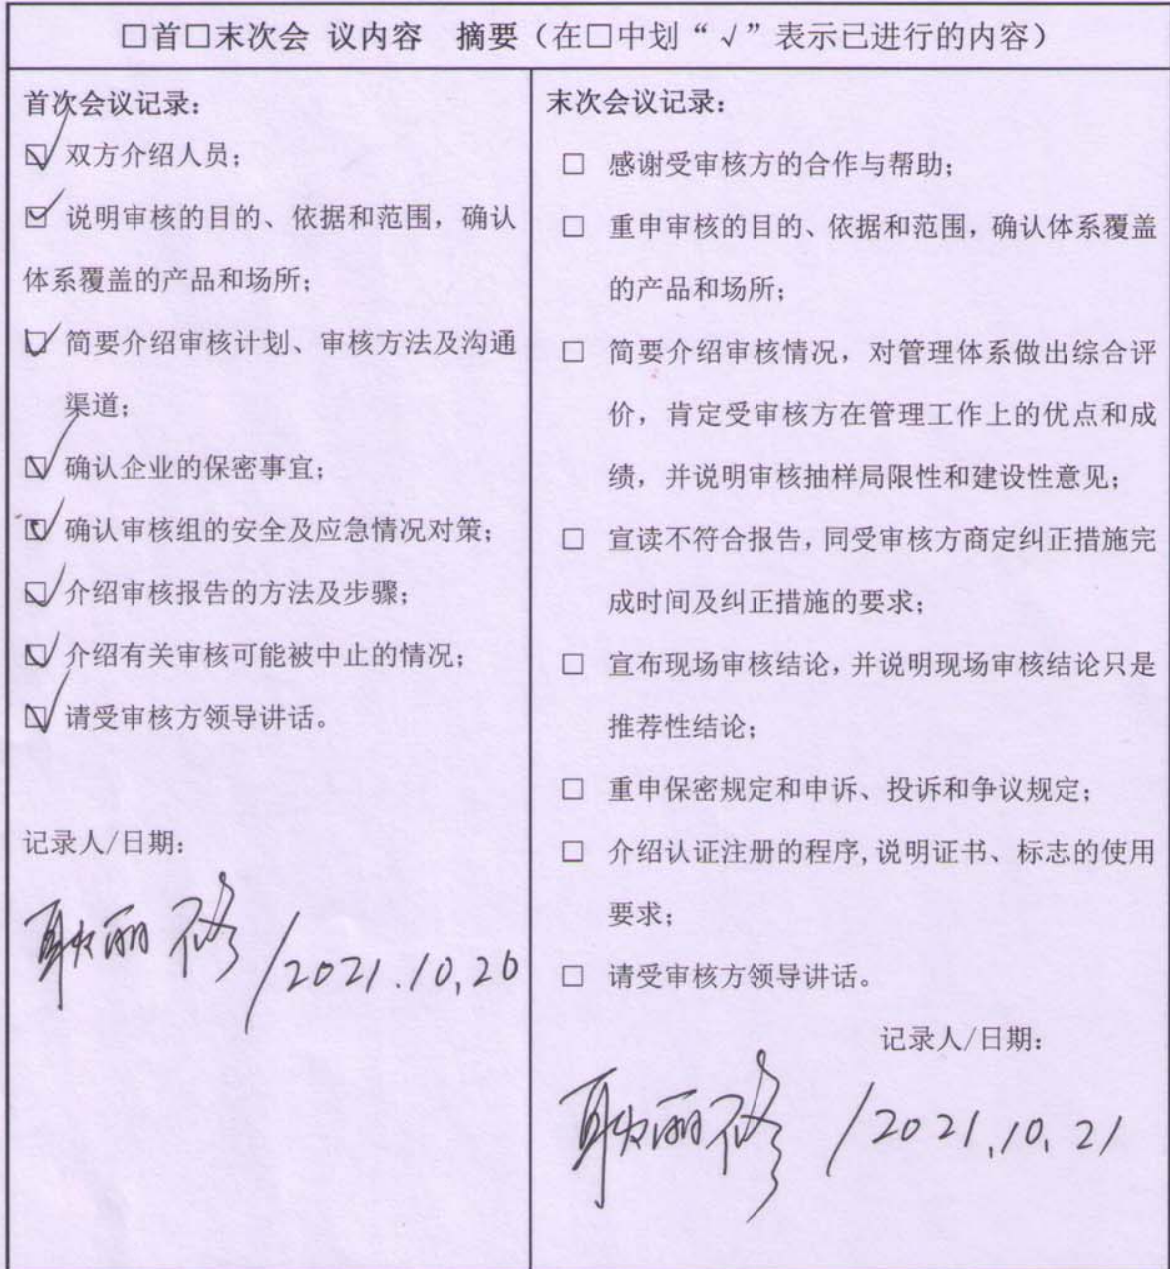 □首□末次会 议内容 摘要（在□中划“√”表示已进行的内容）
首次会议记录：
☑ 双方介绍人员；
☑ 说明审核的目的、依据和范围，确认
体系覆盖的产品和场所；
☑ 简要介绍审核计划、审核方法及沟通
渠道；
☑ 确认企业的保密事宜；
☑ 确认审核组的安全及应急情况对策；
☑ 介绍审核报告的方法及步骤；
☑ 介绍有关审核可能被中止的情况；
☑ 请受审核方领导讲话。
记录人/日期：
耿丽修/2021.10.20
末次会议记录：
□ 感谢受审核方的合作与帮助；
□ 重申审核的目的、依据和范围，确认体系覆盖
的产品和场所；
□ 简要介绍审核情况，对管理体系做出综合评
价，肯定受审核方在管理工作上的优点和成
绩，并说明审核抽样局限性和建设性意见；
□ 宣读不符合报告，同受审核方商定纠正措施完
成时间及纠正措施的要求；
□ 宣布现场审核结论，并说明现场审核结论只是
推荐性结论；
□ 重申保密规定和申诉、投诉和争议规定；
□ 介绍认证注册的程序，说明证书、标志的使用
要求；
□ 请受审核方领导讲话。
记录人/日期：
耿丽修/2021.10.21